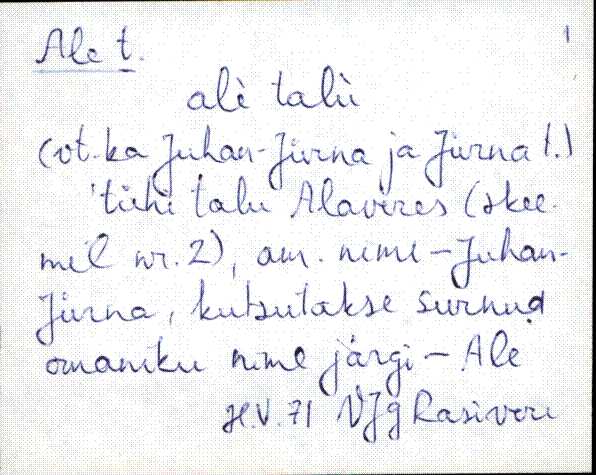 Ale t. 1
alè talù
(vt. ka Juhan-Jürna ja Jürna t.)
'tühi talu Alaveres (skee-
mil nr. 2), am. nimi – Juhan-
Jürna, kutsutakse surnud
omaniku nime järgi – Ale
H.V. 71 VJg Rasivere